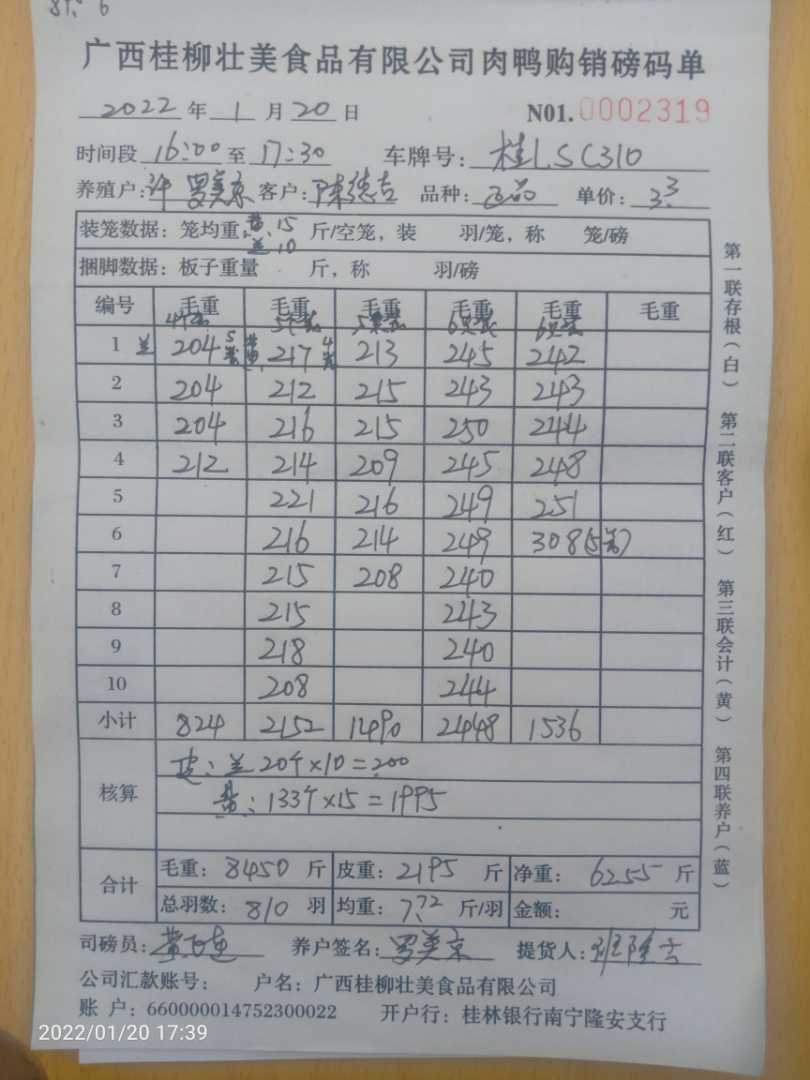 广西桂柳壮美食品有限公司肉鸭购销磅码单
2022 年 1 月 20 日 N01.0002319
时间段 16:00 至 17:30 车牌号: 桂LSC310
养殖户: 许 罗美京 客户: 陈德吉 品种: 正品 单价: 3.3
装笼数据: 笼均重, 15 斤/空笼, 装 羽/笼, 称 笼/磅
兰 10
捆脚数据: 板子重量 斤, 称 羽/磅
编号 毛重 毛重 毛重 毛重 毛重 毛重
1 兰 204 217 213 245 242
2 204 212 215 243 243
3 204 216 215 250 244
4 212 214 209 245 248
5 221 216 249 251
6 216 214 249 308
7 215 208 240
8 215 243
9 218 240
10 208 244
小计 824 2152 1490 2448 1536
核算 皮: 兰 20个×10=200
133个×15=1995
合计 毛重: 8450 斤 皮重: 2195 斤 净重: 6255 斤
总羽数: 810 羽 均重: 7.72 斤/羽 金额: 元
司磅员: 养户签名: 罗美京 提货人:
公司汇款账号: 户名: 广西桂柳壮美食品有限公司
账 户: 660000014752300022 开户行: 桂林银行南宁隆安支行
第一联存根(白) 第二联客户(红) 第三联会计(黄) 第四联养户(蓝)
2022/01/20 17:39